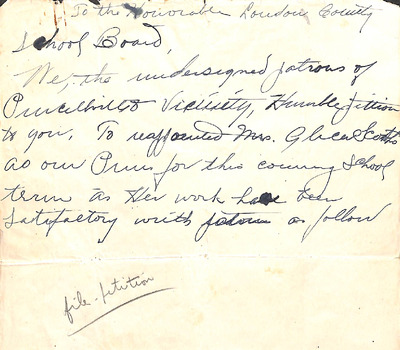 To the Honorable Loudoun County
School Board,
We, the undersigned patrons of
Purcellville & Vicinity, Humbly
to you, To Mrs.
as our Prin for this coming School
term as Her work have been
Satisfactory with as follow
file-petition